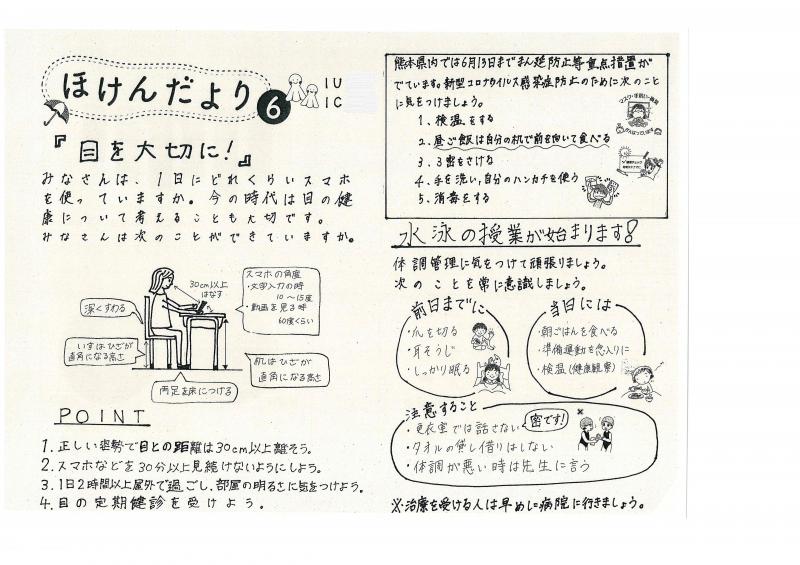 ほけんだより
6
1U
1C
『目を大切に!』
みなさんは、1日にどれくらいスマホ
を使っていますか。今の時代は目の健
康について考えることも大切です。
みなさんは次のことができていますか。
30cm以上
はなす
スマホの角度
・文字入力の時
10〜15度
・動画を見る時
60度くらい
深くすわる
いすはひざが
直角になる高さ
机はひじが
直角になる高さ
両足を床につける
POINT
1.正しい姿勢で目との距離は30cm以上離そう。
2.スマホなどを30分以上見続けないようにしよう。
3.1日2時間以上屋外で過ごし、部屋の明るさに気をつけよう。
4.目の定期健診を受けよう。
熊本県内では6月13日までまん延防止等重点措置が
でています。新型コロナウイルス感染症防止のために次のこと
に気をつけましょう。
1、検温をする
2、昼ご飯は自分の机で前を向いて食べる
3、3密をさける
4、手を洗い、自分のハンカチを使う
5、消毒をする
水泳の授業が始まります!
体調管理に気をつけて頑張りましょう。
次のことを常に意識しましょう。
前日までに
・爪を切る
・耳そうじ
・しっかり眠る
当日には
・朝ごはんを食べる
・準備運動を念入りに
・検温(健康観察)
注意すること
・更衣室では話さない
密です!
・タオルの貸し借りはしない
・体調が悪い時は先生に言う
※治療を受ける人は早めに病院に行きましょう。